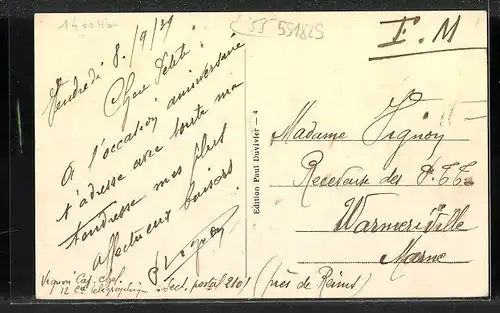 F. M
55 551825
Vendredi 8/9/39
Chere Petite
A l'occasion anniversaire
t'adresse avec toute ma
tendresse mes plus
affectueux baisers
Vignon
Vignon Cap. chef.
12 Cie télégraphique
Sect. postal 2101
Edition Paul Duvivier — 4
Madame Vignon
Receveuse des P.T.T.
Warmeriville
Marne
(près de Reims)